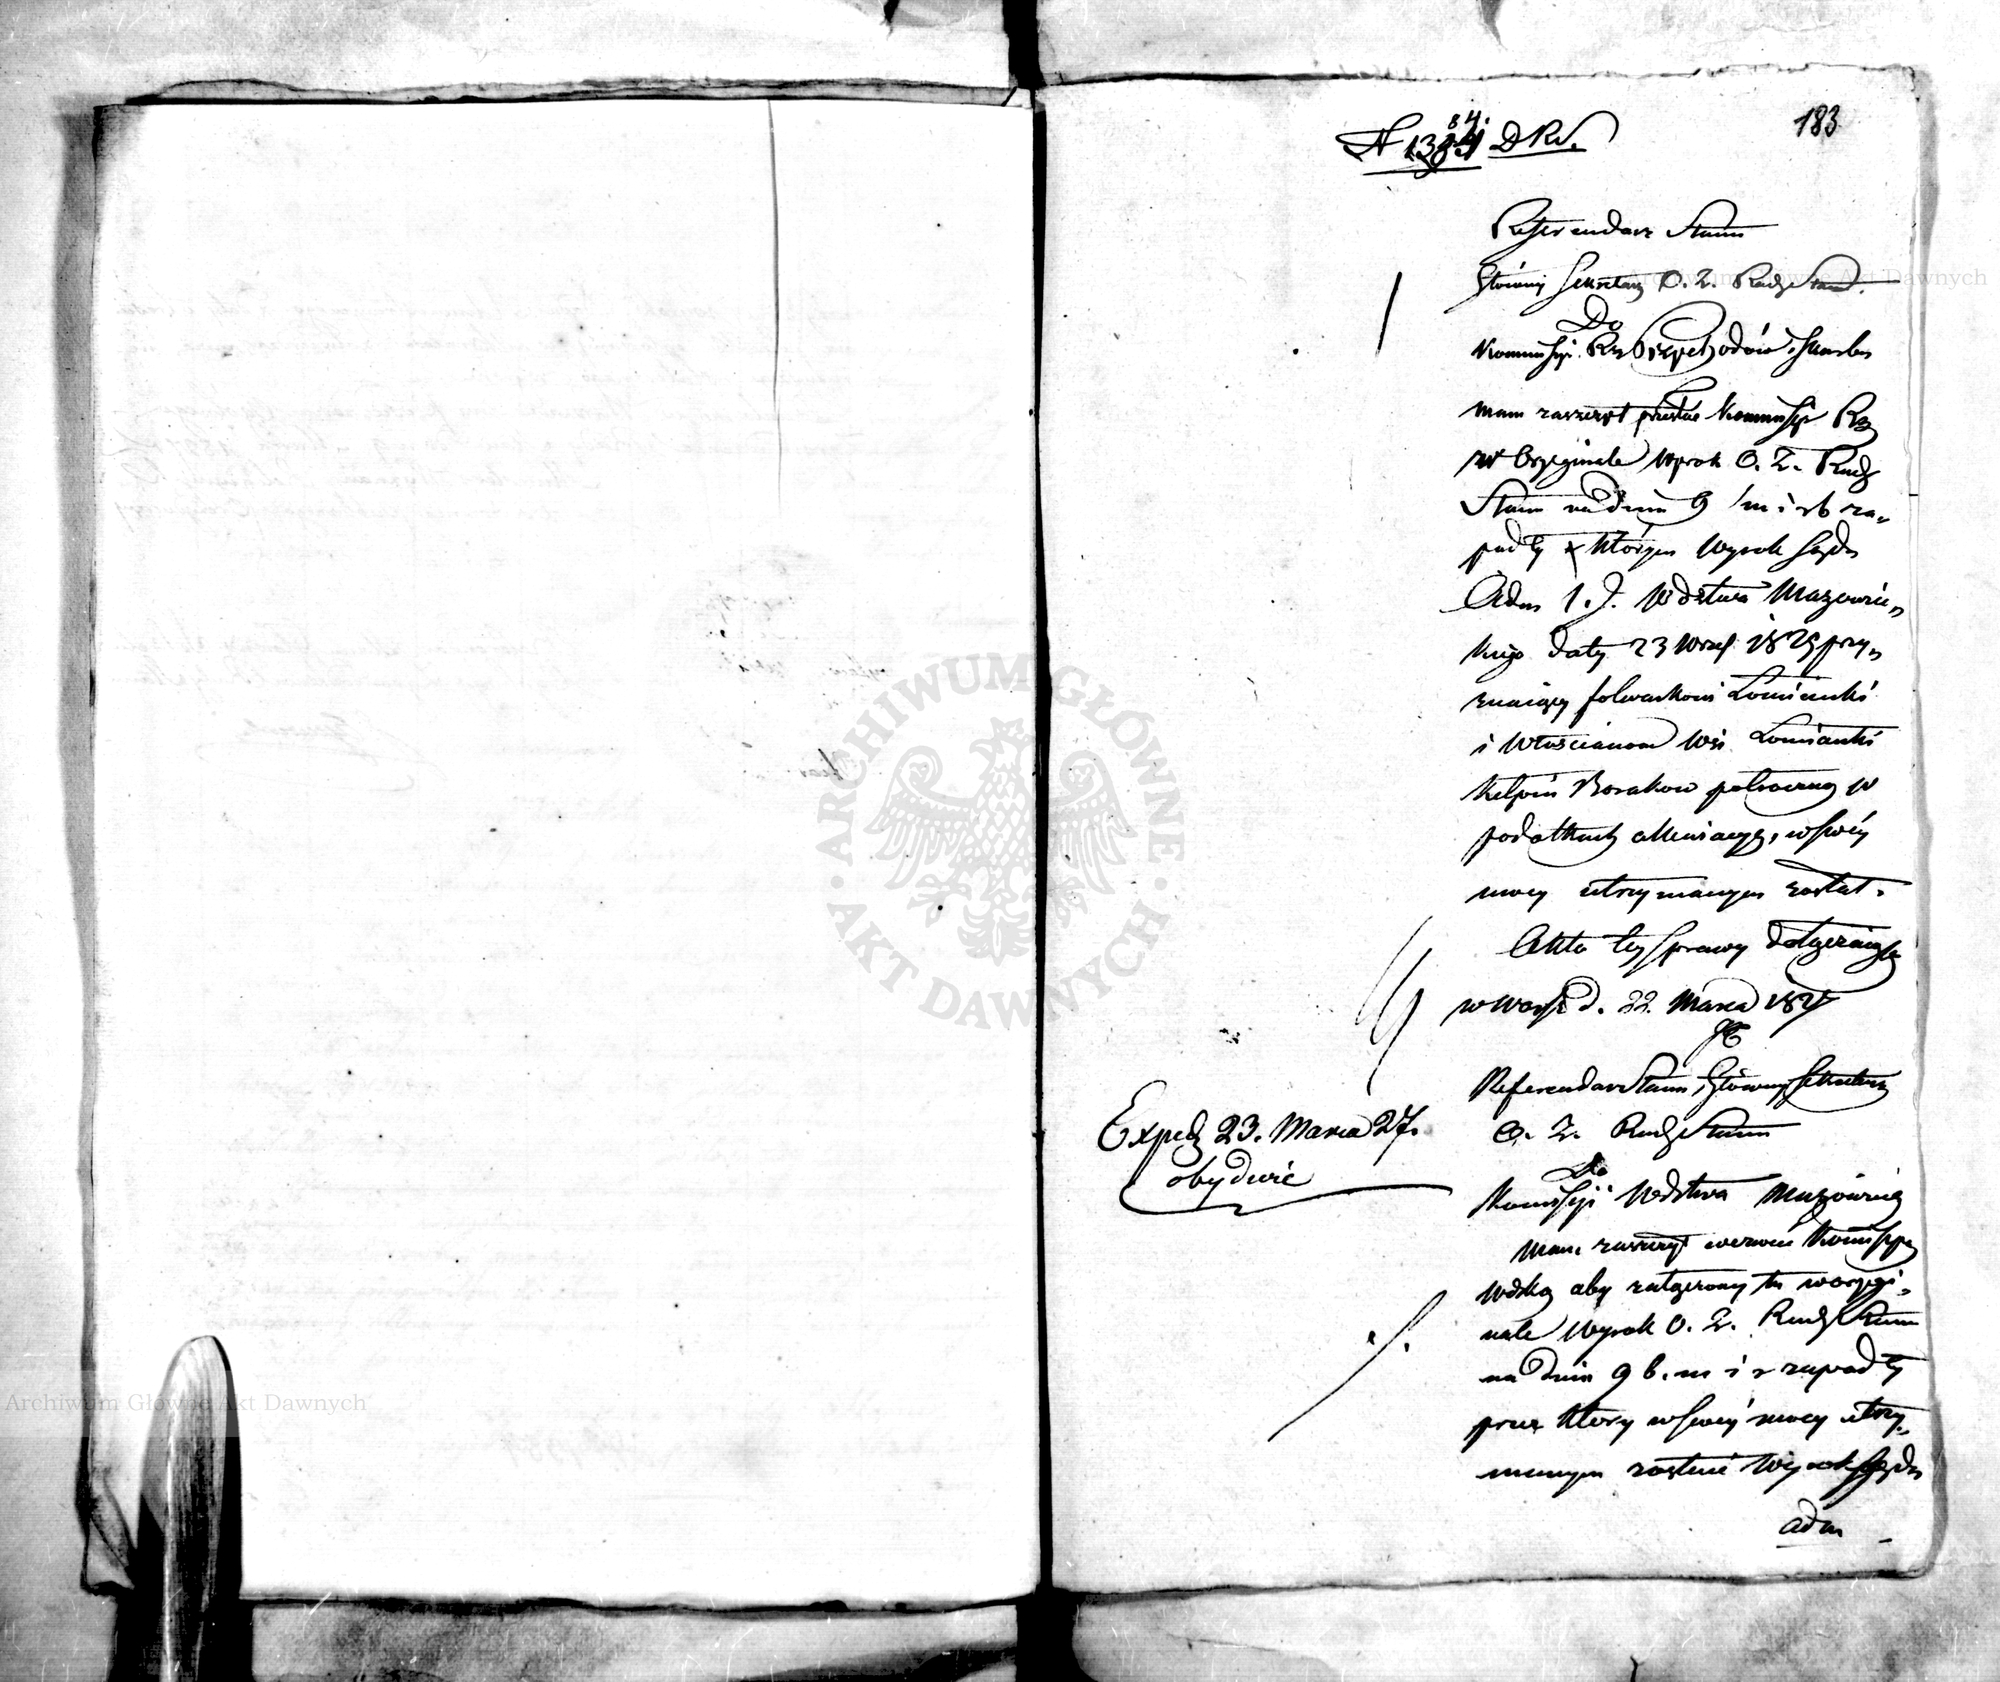 183
84.
N 1384 DRS.
Referendarz Stanu
Główny Sekretarz O. Z. Rady Stanu.
Do
Kommissyi Rz Przychodów i Skarbu
Mam zaszczyt przesłać Kommissyi Rz
w Oryginale Wyrok O. Z. Rady
Stanu na dniu 9 m i r b za-
padły którym Wyrok Sądu
Adm I. J. Wdztwa Mazowiec-
kiego daty 23 Wrześ 1825 przy-
znaiący folwarkowi Łomianki
i Włościanom Wsi Łomianki
Kełpin Borakow połroczną w
podatkach allewiacyę, w swéy
mocy utrzymanym został.
Akta tey sprawy dołączaią się
w Warsz d. 22. Marca 1827
Referendarz Stanu, Główny Sekretarz
O. Z. Rady Stanu
Expedy 23. Marca 27.
obydwie
Do
Komissyi Wdztwa Mazowiec
Mam zaszczyt wezwać Komissyę
Wdzką aby załączony tu w orygi-
nale Wyrok O. Z. Rady Stanu
na dniu 9 b. m i r zapadły
przez który w swéy mocy utrzy-
manym został Wyrok Sądu
adm
Archiwum Główne Akt Dawnych
Archiwum Główne Akt Dawnych
ARCHIWUM GŁÓWNE
AKT DAWNYCH